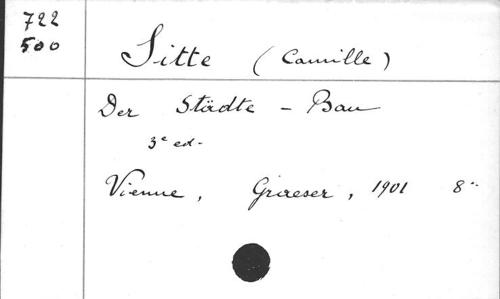 722
500
Sitte (Camille)
Der Städte - Bau
3e ed-
Vienne, Graeser, 1901 8°